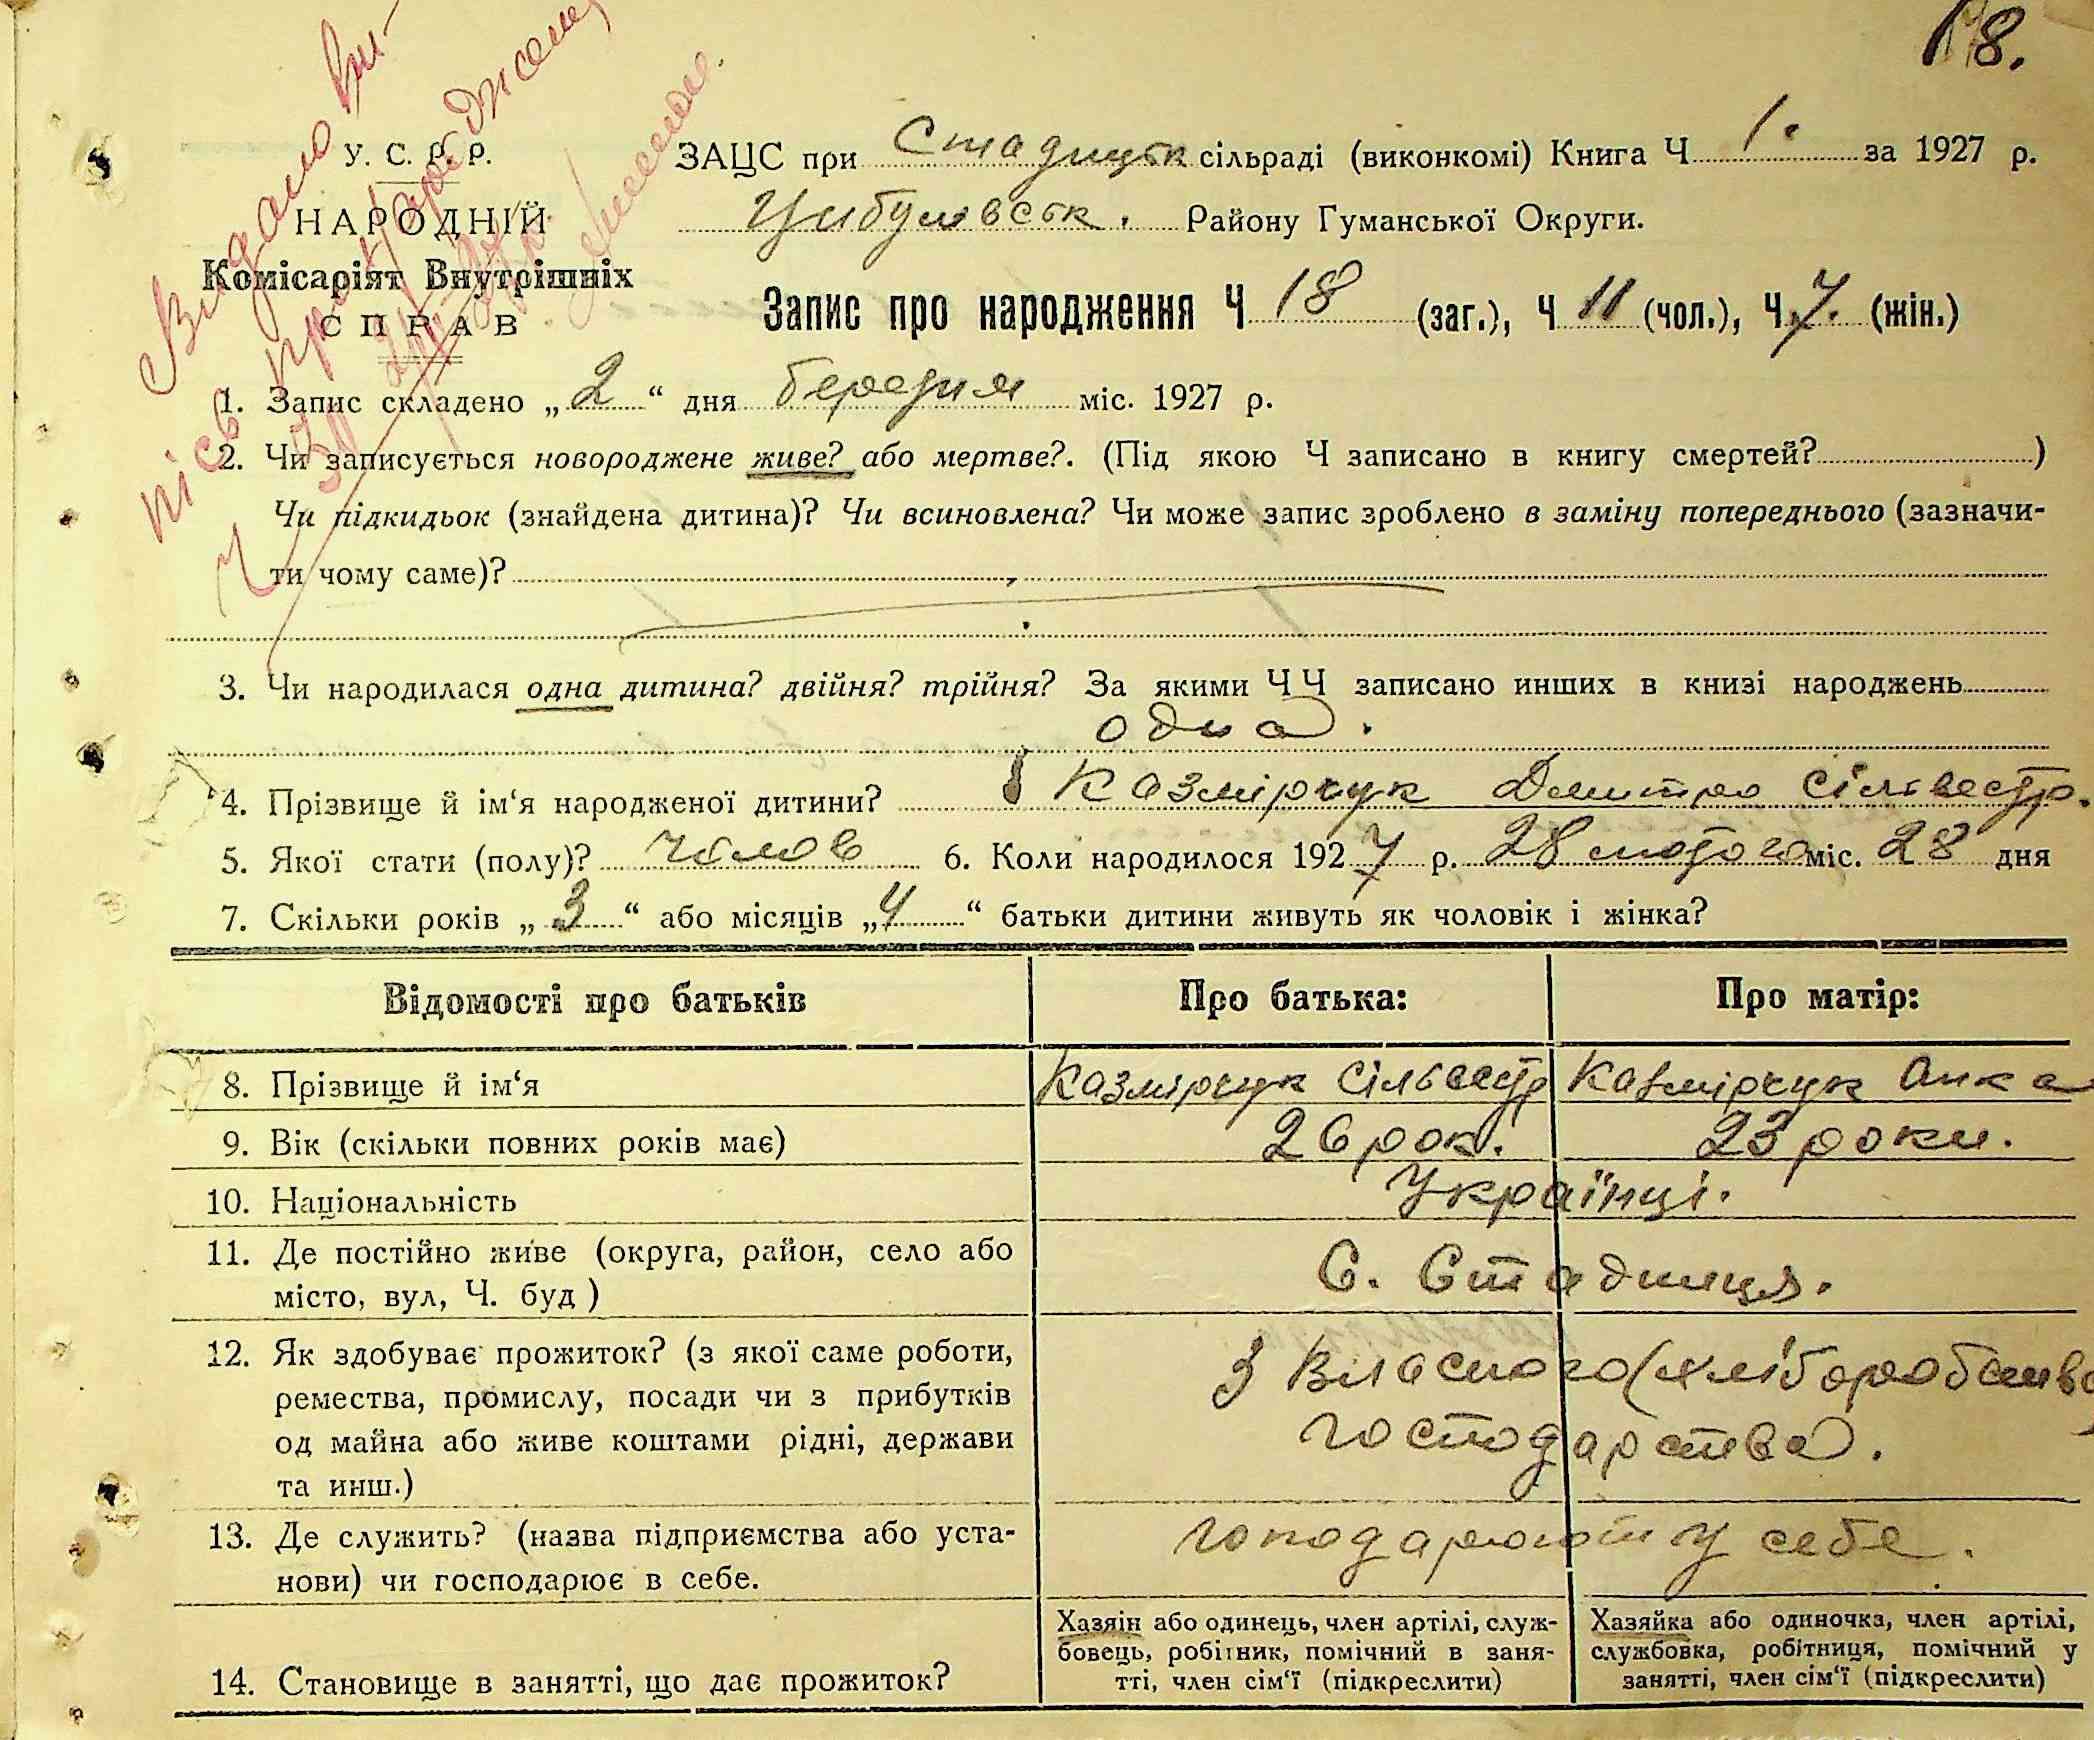 18.
Видано ви-
пись про народжен.
У. С. Р. Р.
НАРОДНІЙ
Комісаріят Внутрішніх
СПРАВ
ЗАЦС при Стадницьк сільраді (виконкомі) Книга Ч 1. за 1927 р.
Цибулівськ. Району Гуманської Округи.
Запис про народження Ч 18 (заг.), Ч 11 (чол.), Ч 7. (жін.)
1. Запис складено „ 2 “ дня березня міс. 1927 р.
2. Чи записується новороджене живе? або мертве?. (Під якою Ч записано в книгу смертей? )
Чи підкидьок (знайдена дитина)? Чи всиновлена? Чи може запис зроблено в заміну попереднього (зазначи-
ти чому саме)?
3. Чи народилася одна дитина? двійня? трійня? За якими ЧЧ записано инших в книзі народжень
одна.
4. Прізвище й ім‘я народженої дитини? Казмірчук Дмитро Сільвестр.
5. Якої стати (полу)? чолов 6. Коли народилося 1927 р. 28 лютого міс. 28 дня
7. Скільки років „ 3 “ або місяців „ 4 “ батьки дитини живуть як чоловік і жінка?
Відомості про батьків Про батька: Про матір:
8. Прізвище й ім‘я Казмірчук Сільвестр Казмірчук Анна
9. Вік (скільки повних років має) 26 рок. 23 роки.
10. Національність Українці.
11. Де постійно живе (округа, район, село або
місто, вул, Ч. буд ) С. Стадниця.
12. Як здобуває прожиток? (з якої саме роботи,
ремества, промислу, посади чи з прибутків
од майна або живе коштами рідні, держави
та инш.)
З власного (хліборобства)
господарства.
13. Де служить? (назва підприємства або уста-
нови) чи господарює в себе.
гоподарюють у себе.
14. Становище в занятті, що дає прожиток?
Хазяін або одинець, член артілі, служ-
бовець, робітник, помічний в заня-
тті, член сім‘ї (підкреслити)
Хазяйка або одиночка, член артілі,
службовка, робітниця, помічний у
занятті, член сім‘ї (підкреслити)